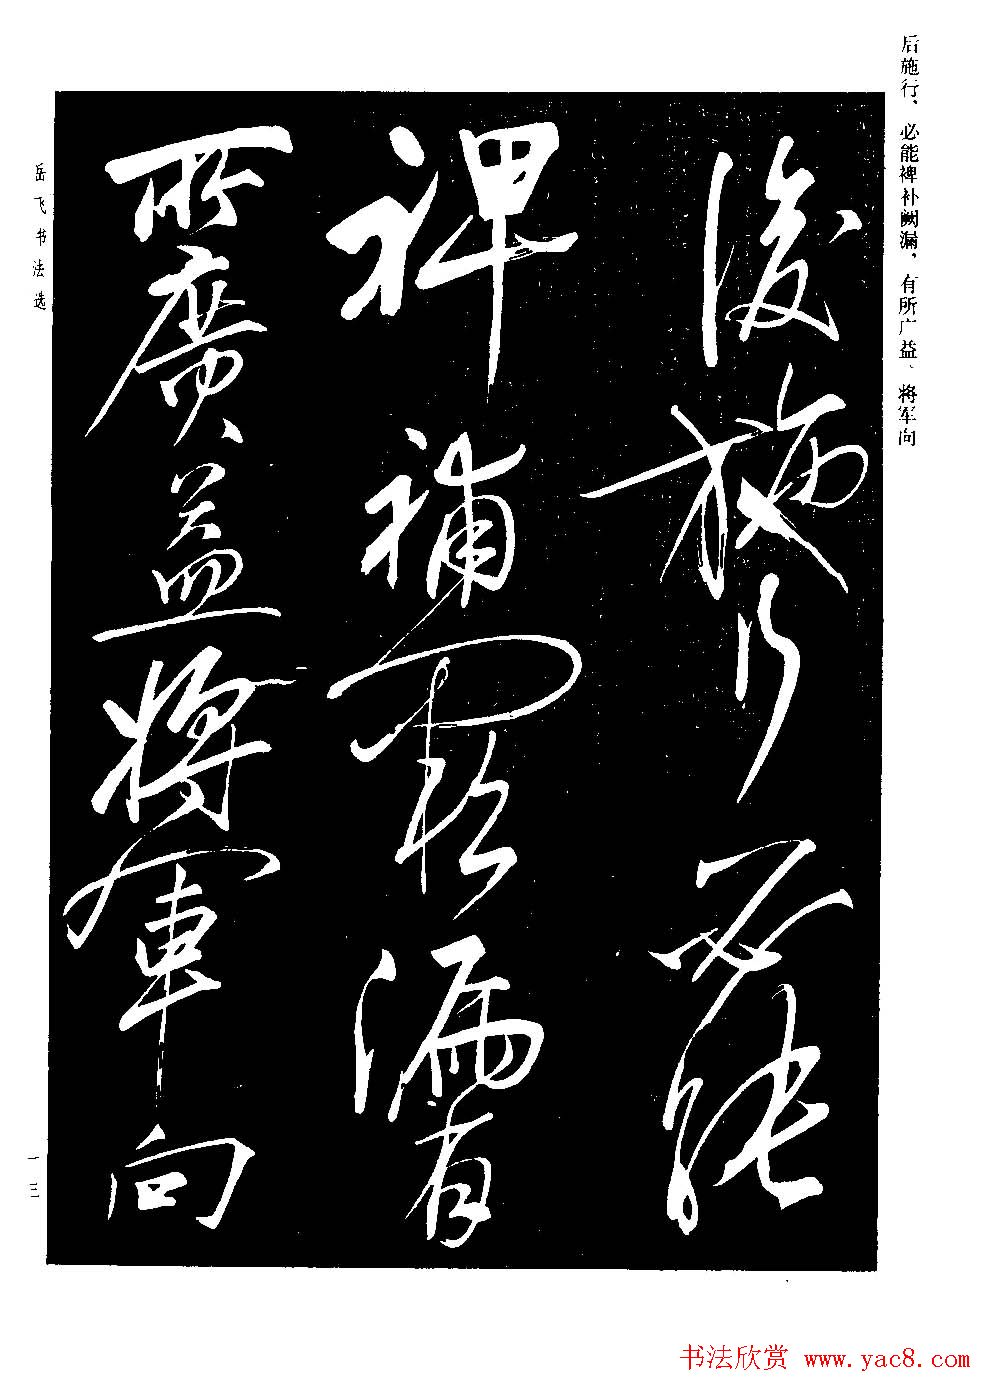 后施行，必能裨补阙漏，有所广益、将军向
後施行必能
裨補闕漏有
所廣益將軍向
岳飞书法选
一三
书法欣赏 www.yac8.com